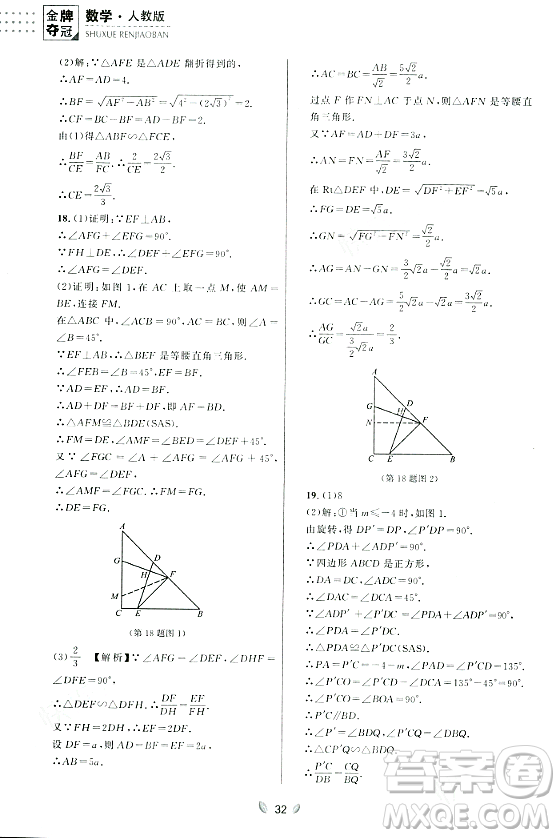 金牌
夺冠
数学·人教版
SHUXUE RENJIAOBAN
(2)解:∵△AFE 是△ADE 翻折得到的,
∴AF=AD=4.
∴BF=√(AF²-AB²)=√(4²-(2√3)²)=2.
∴CF=BC-BF=2.
由(1)得△ABF∽△FCE,
∴BF/CE=AB/FC. ∴2/CE=2√3/2.
∴CE=2√3/3.
18.(1)证明:∵EF⊥AB,
∴∠AFG+∠EFG=90°.
∵FH⊥DE,∴∠DEF+∠EFG=90°.
∴∠AFG=∠DEF.
(2)证明:如图 1,在 AC 上取一点 M,使 AM=
BE,连接 FM.
在△ABC 中,∠ACB=90°,AC=BC,
∴∠A=∠B=45°.
∵EF⊥AB,∴△BEF 是等腰直角三角形.
∴∠FEB=∠B=45°,EF=BF.
∵AD=EF,∴AD=BF.
∴AD+DF=BF+DF,即 AF=BD.
∴△AFM≌△BDE(SAS).
∴FM=DE,∠AMF=∠BED=45°+∠DEF.
又∵∠FGC=∠A+∠AFG=45°+∠AFG,
∴∠AMF=∠FGC.∴FG=FM.
∴DE=FG.
A
G
D
H
F
M
C
E
B
(第 18 题图 1)
(3)2/3 【解析】∵∠AFG=∠DEF,∠AFG=∠
DFE=90°,
∴△DEF∽△DFH.∴DF/DH=EF/FH.
又∵FH=2DH,∴EF=2DF.
设 DF=a,则 AD=EF=BF=2a,
∴AB=5a.
∴AC=AB/√2=5√2/2 a.
过点 F 作 FN⊥AC 于点 N,则△AFN 是等腰直
角三角形.
又∵AF=AD+DF=3a,
∴AN=FN=AF/√2=3√2/2 a.
在 Rt△DEF 中,DE=√(DF²+EF²)=√5a,
∴FG=DE=√5a.
∴GN=√(FG²-FN²)=√2/2 a.
∴AG=AN-GN=3√2/2 a-√2/2 a=√2a.
∴GC=AC-AG=5√2/2 a-√2a=3√2/2 a.
∴AG/GC=√2a/(3/2 √2a)=2/3.
A
G
D
H
N
F
C
E
B
(第 18 题图 2)
19.(1)8
(2)解:①当 m≤-4 时,如图 1.
由旋转,得 DP′=DP,∠PDP′=90°.
∴∠PDA+∠ADP′=90°.
∵四边形 ABCD 是正方形,
∴DA=DC,∠ADC=90°,
∠DAC=∠DCA=45°.
∴∠ADP′+∠P′DC=90°.
∴∠PDA=∠P′DC.
∴△PDA≌△P′DC(SAS).
∴PA=P′C=-4-m,∠P′CD=∠PAD=135°.
∴∠P′CO=∠P′CD-∠DCA=90°.
∴∠P′CO=∠POB=90°.
∴P′C∥PB.
∴△P′CQ∽△BOQ.
∴P′C/BO=CQ/OQ.
32
答案圈
MXQE.COM